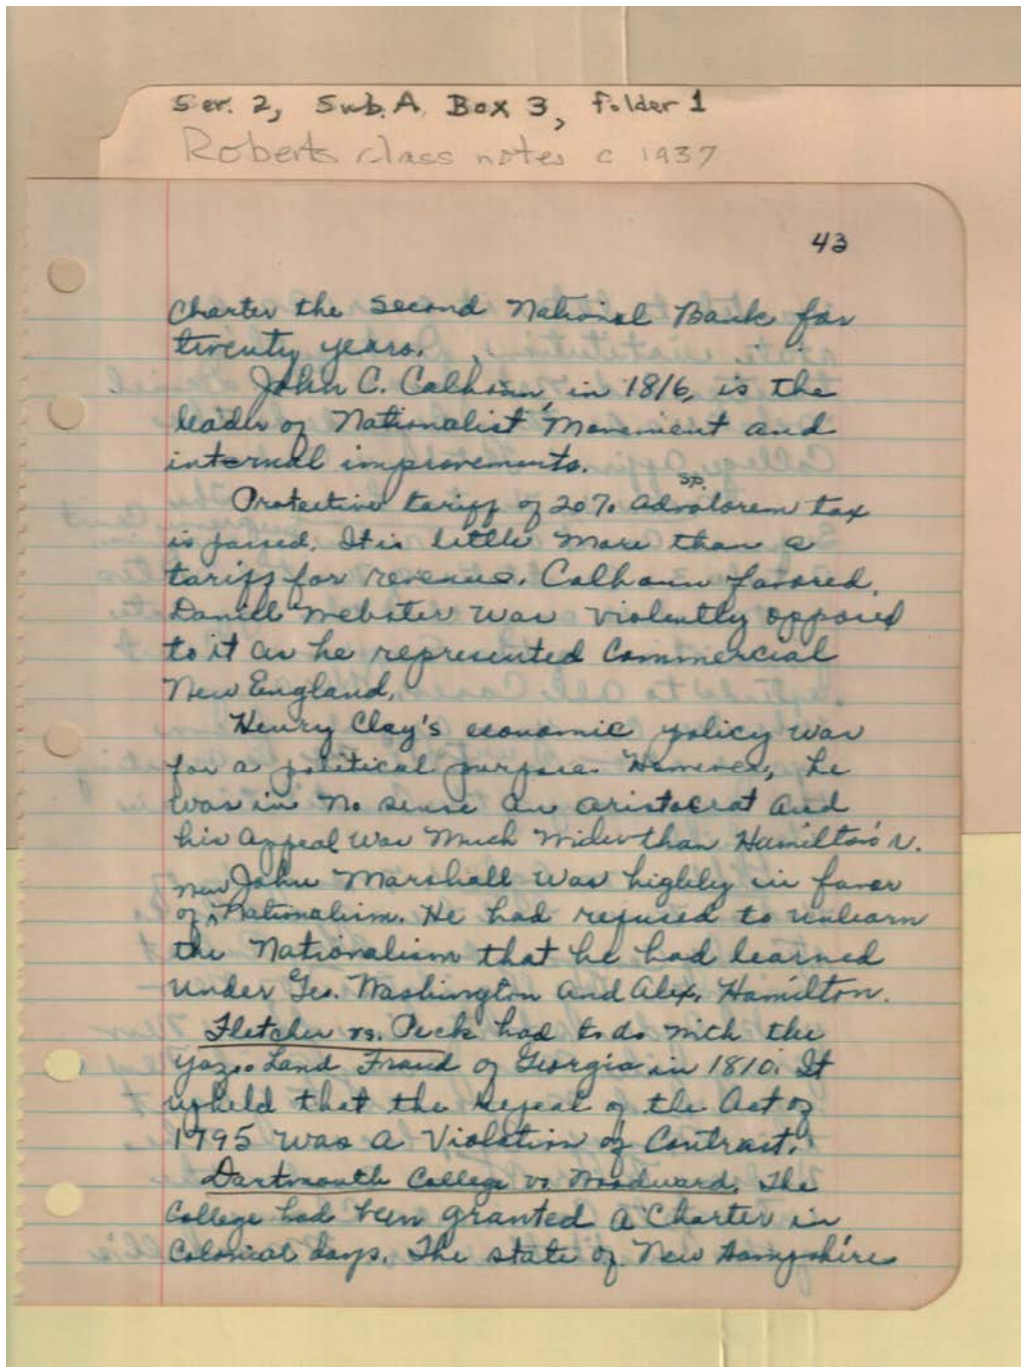 Ser. 2, Sub. A, Box 3, Folder 1
Roberts class notes c 1937
43
Charter the Second National Bank for
twenty years.
John C. Calhoun, in 1816, is the
leader of Nationalist Movement and
internal improvements.
sp.
Protective tariff of 20% advalorem tax
is passed. It is little more than a
tariff for revenue. Calhoun favored.
Daniel Webster was violently opposed
to it as he represented Commercial
New England.
Henry Clay's economic policy was
for a political purpose. However, he
was in no sense an aristocrat and
his appeal was much wider than Hamilton's.
John Marshall was highly in favor
new
of ^ Nationalism. He had refused to unlearn
the Nationalism that he had learned
under Geo. Washington and Alex. Hamilton.
Fletcher vs. Peck had to do with the
Yazoo Land Fraud of Georgia in 1810. It
upheld that the Repeal of the Act of
1795 was a Violation of Contract.
Dartmouth College vs. Woodward. The
College had been granted a Charter in
Colonial days. The state of New Hampshire